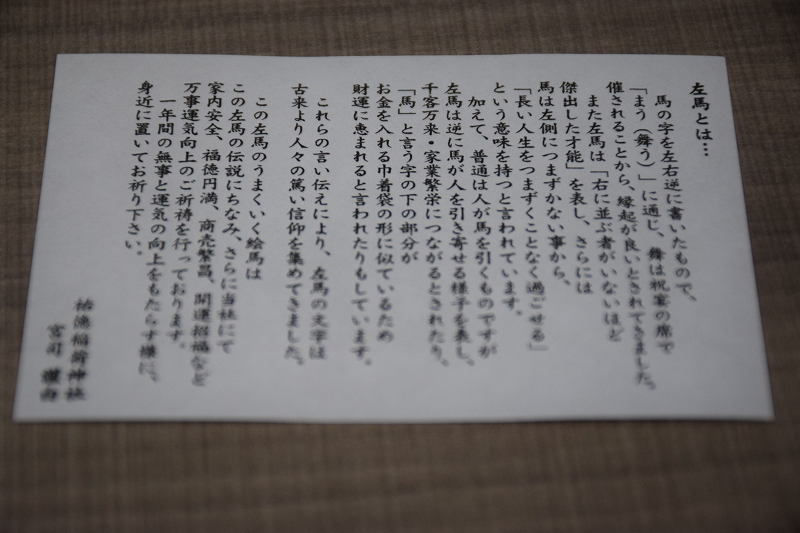 左馬とは…
馬の字を左右逆に書いたもので、
「まう（舞う）」に通じ、舞は祝宴の席で
催されることから、縁起が良いとされてきました。
また左馬は「右に並ぶ者がいないほど
傑出した才能」を表し、さらには
馬は左側につまずかない事から、
「長い人生をつまずくことなく過ごせる」
という意味を持つと言われています。
加えて、普通は人が馬を引くものですが
左馬は逆に馬が人を引き寄せる様子を表し、
千客万来・家業繁栄につながるとされたり、
「馬」と言う字の下の部分が
お金を入れる巾着袋の形に似ているため
財運に恵まれると言われたりもしています。
これらの言い伝えにより、左馬の文字は
古来より人々の篤い信仰を集めてきました。
この左馬のうまくいく絵馬は
この左馬の伝説にちなみ、さらに当社にて
家内安全、福徳円満、商売繁昌、開運招福など
万事運気向上のご祈祷を行っております。
一年間の無事と運気の向上をもたらす様に、
身近に置いてお祈り下さい。
稲荷神社
宮司